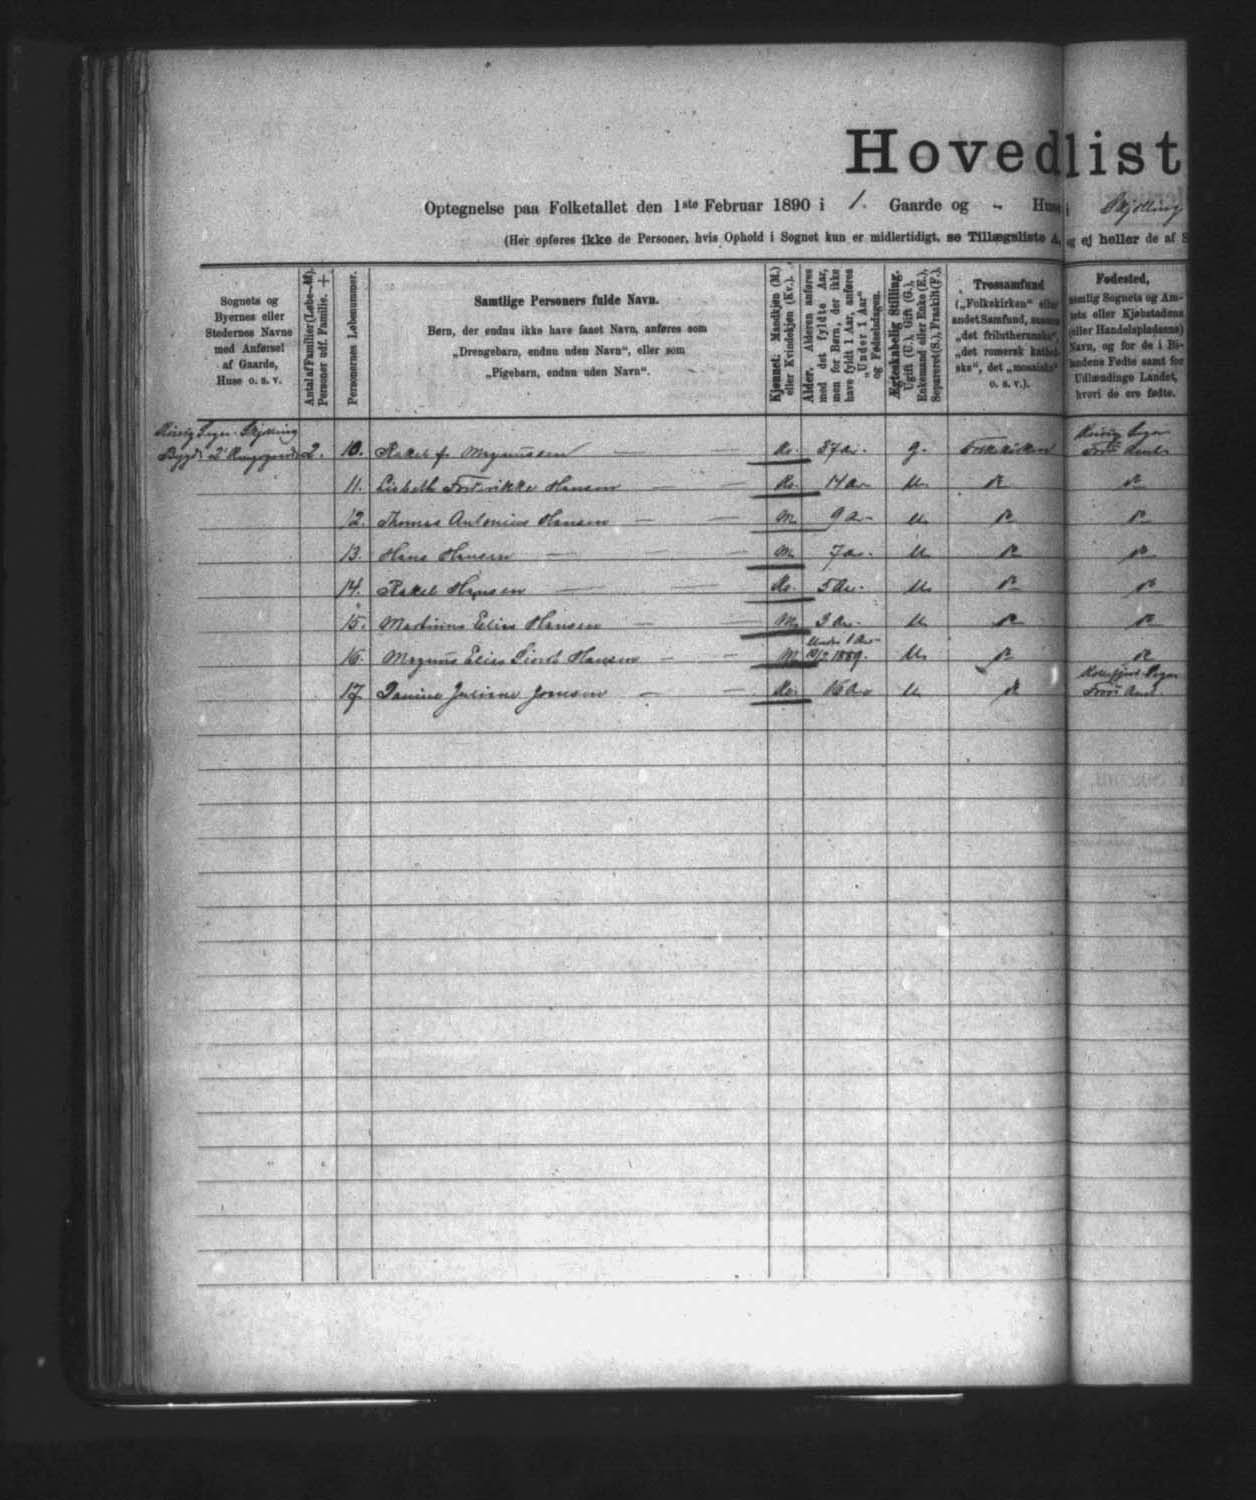 Hovedlist
Optegnelse paa Folketallet den 1ste Februar 1890 i 1. Gaarde og - Huse i Skjelling
(Her opføres ikke de Personer, hvis Ophold i Sognet kun er midlertidigt, se Tillægsliste A, og ej heller de af S
Sognets og
Byernes eller
Stedernes Navne
med Anførsel
af Gaarde,
Huse o. s. v.
Antal af Familier (Løbe-Nr.).
Personer udf. Familie. +
Personernes Løbenummer.
Samtlige Personers fulde Navn.
Børn, der endnu ikke have faaet Navn, anføres som
„Drengebarn, endnu uden Navn“, eller som
„Pigebarn, endnu uden Navn“.
Kjønnet. Mandkjøn (M.)
eller Kvindekjøn (Kv.).
Alder. Alderen anføres
med det fyldte Aar,
men for Børn, der ikke
have fyldt 1 Aar, anføres
„Under 1 Aar“
og Fødselsdagen.
Ægteskabelig Stilling.
Ugift (U.), Gift (G.),
Enkemand eller Enke (E.),
Separeret (S.), Fraskilt (F.).
Trossamfund
(„Folkekirken“ eller
andet Samfund, saasom
„det frilutheranske“,
„det romersk katholske“, det „mosaiske“
o. s. v.).
Fødested,
nemlig Sognets og Amtets eller Kjøbstadens
(eller Handelspladsens)
Navn, og for de i Bilandene Fødte samt for
Udlændinge Landet,
hvori de ere fødte.
Kvivig Sogn. Skjelling
Bygd 2. 10. Rakel f. Magnussen Kv. 37 Ar. G. Folkekirken Kvivig Sogn Færø Amt
11. Lisbeth Fredrikke Hansen Kv. 14 Ar U. do do
12. Thomas Antonius Hansen M. 9 Ar U. do do
13. Hans Hansen M. 7 Ar. U. do do
14. Rakel Hansen Kv. 5 Ar. U. do do
15. Martinus Elias Hansen M. 3 Ar. U. do do
16. Magnus Elias Hansen M. Under 1 Ar 1889. U. do do
17. Juliane Joensen Kv. 16 Ar U. do Sogn Færø Amt.